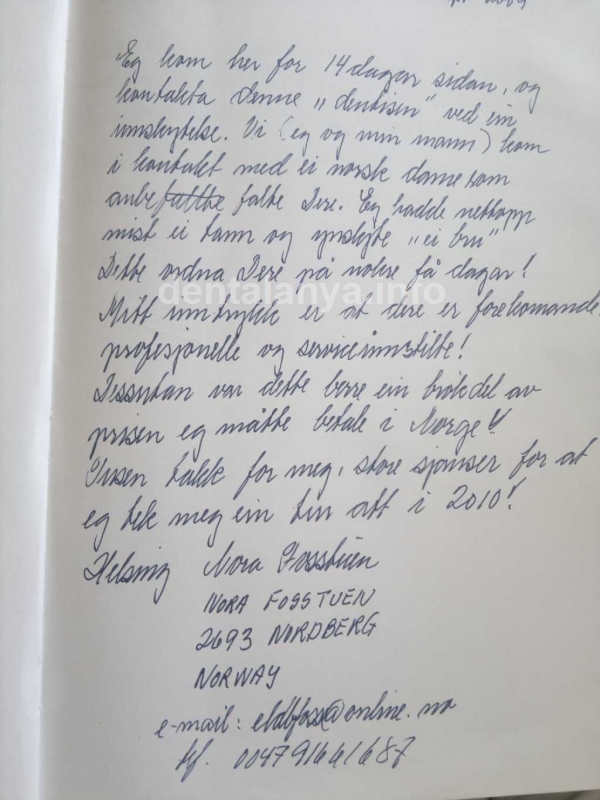 pr 2009
Eg kom her for 14 dagar sidan, og
kontakta denne „dentisen" ved ein
innskytelse. Vi (eg og min mann) kom
i kontakt med ei norsk dame som
anbefaltte falte Dere. Eg hadde nettopp
mist ei tann og ynskjte „ei bru"
Dette ordna Dere på nokre få dagar!
dentalanya.info
Mitt inntrykk er at dere er forekomande,
profesjonelle og serviceinnstilte!
Dessutan var dette berre ein brøkdel av
prisen eg måtte betale i Norge!!
Tusen takk for meg, store sjanser for at
eg tek meg ein tur att i 2010!
Helsing Nora Fosstuen
NORA FOSSTUEN
2693 NORDBERG
NORWAY
e-mail: @online.no
tlf. 004791661687